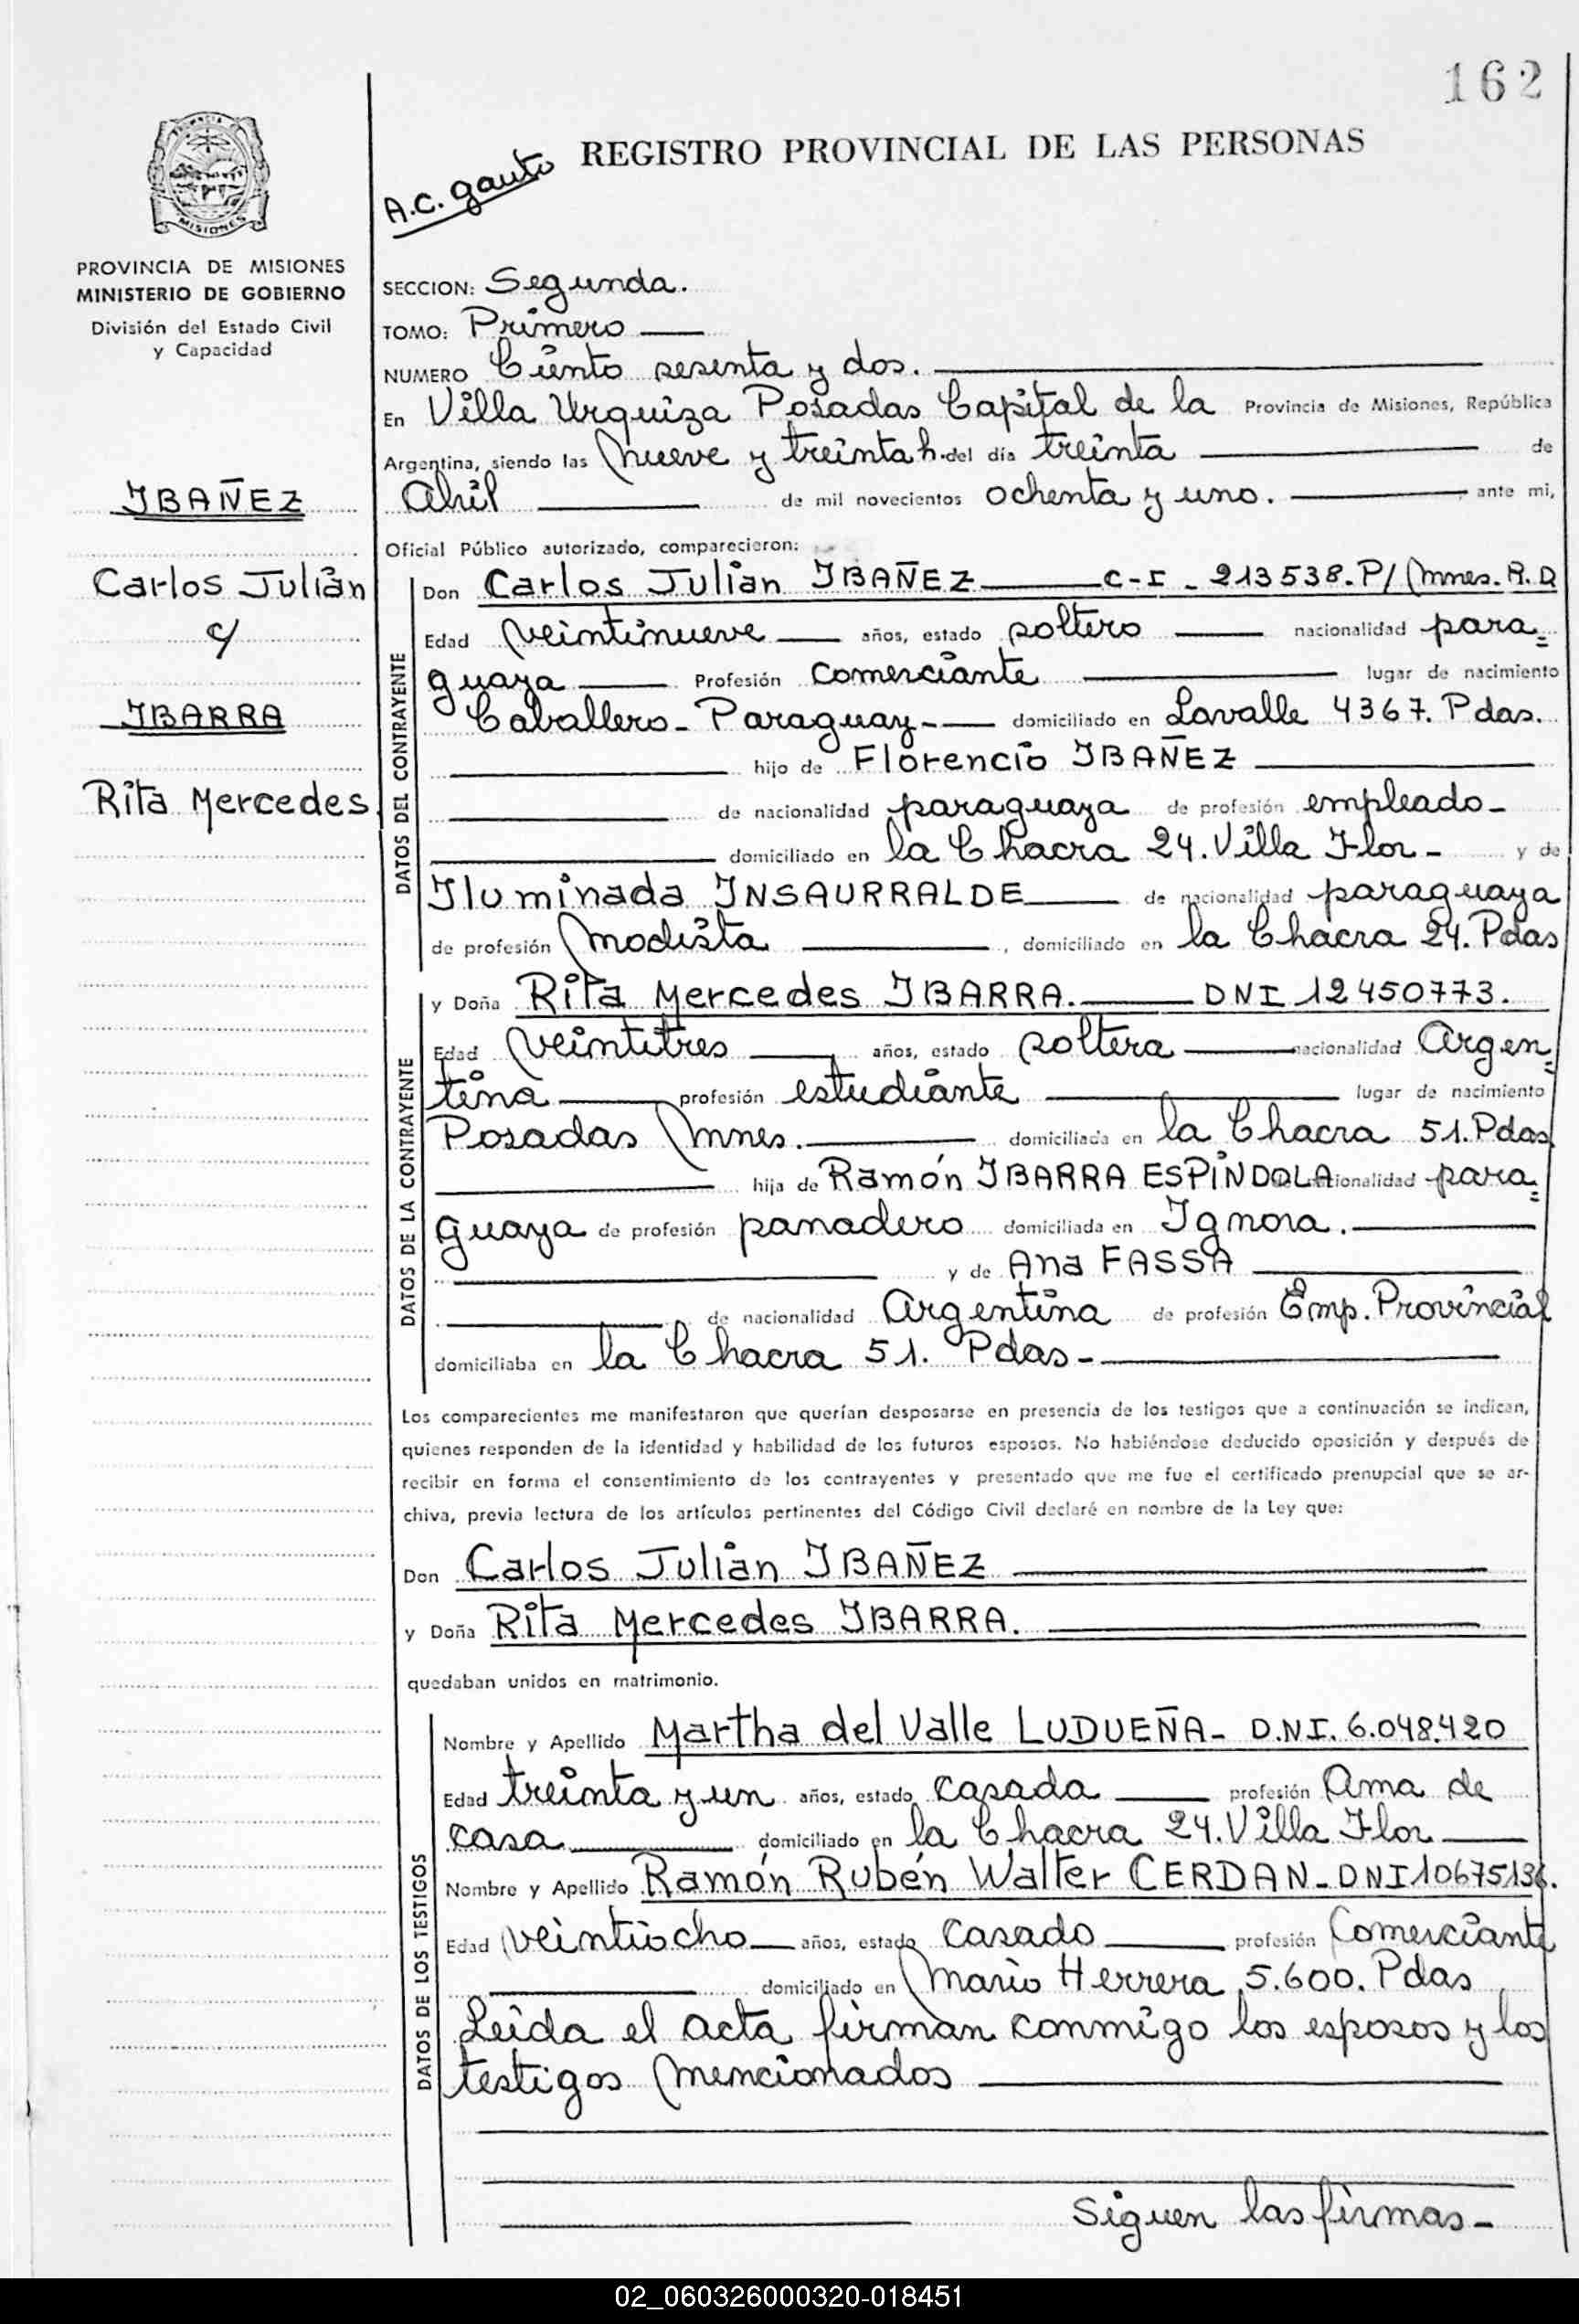 162
REGISTRO PROVINCIAL DE LAS PERSONAS
A.C. Gauto
MISIONES
PROVINCIA DE MISIONES
MINISTERIO DE GOBIERNO
División del Estado Civil
y Capacidad
IBAÑEZ
Carlos Julián
c/
IBARRA
Rita Mercedes
SECCION: Segunda.
TOMO: Primero
NUMERO Ciento sesenta y dos.
En Villa Urquiza Posadas Capital de la Provincia de Misiones, República
Argentina, siendo las nueve y treinta h. del día treinta de
Abril de mil novecientos ochenta y uno. , ante mi,
Oficial Público autorizado, comparecieron:
DATOS DEL CONTRAYENTE
Don Carlos Julian IBAÑEZ C-I - 213538-P/ Mnes. R.D
Edad veintinueve años, estado soltero nacionalidad para=
guaya Profesión comerciante lugar de nacimiento
Caballero - Paraguay - domiciliado en Lavalle 4367. Pdas.
hijo de Florencio IBAÑEZ
de nacionalidad paraguaya de profesión empleado -
domiciliado en la Chacra 24. Villa Flor - y de
Iluminada INSAURRALDE de nacionalidad paraguaya
de profesión Modista , domiciliado en la Chacra 24. Pdas
DATOS DE LA CONTRAYENTE
y Doña Rita Mercedes IBARRA. DNI 12450773.
Edad veintitres años, estado soltera nacionalidad Argen=
tina profesión estudiante lugar de nacimiento
Posadas Mnes. domiciliada en la Chacra 51. Pdas
hija de Ramón IBARRA ESPÍNDOLA nacionalidad para=
guaya de profesión panadero domiciliada en Ignora.
y de Ana FASSA
de nacionalidad Argentina de profesión Emp. Provincial
domiciliaba en la Chacra 51. Pdas -
Los comparecientes me manifestaron que querían desposarse en presencia de los testigos que a continuación se indican,
quienes responden de la identidad y habilidad de los futuros esposos. No habiéndose deducido oposición y después de
recibir en forma el consentimiento de los contrayentes y presentado que me fue el certificado prenupcial que se ar-
chiva, previa lectura de los artículos pertinentes del Código Civil declaré en nombre de la Ley que:
Don Carlos Julián IBAÑEZ
y Doña Rita Mercedes IBARRA.
quedaban unidos en matrimonio.
DATOS DE LOS TESTIGOS
Nombre y Apellido Martha del Valle LUDUEÑA - D.N.I. 6.048.420
Edad treinta y un años, estado casada profesión Ama de
casa domiciliado en la Chacra 24. Villa Flor
Nombre y Apellido Ramón Rubén Walter CERDAN - DNI 10675136.
Edad veintiocho años, estado casado profesión Comerciante
domiciliado en Mario Herrera 5.600. Pdas
Leida el acta firman conmigo los esposos y los
testigos mencionados
Siguen las firmas -
02_060326000320-018451